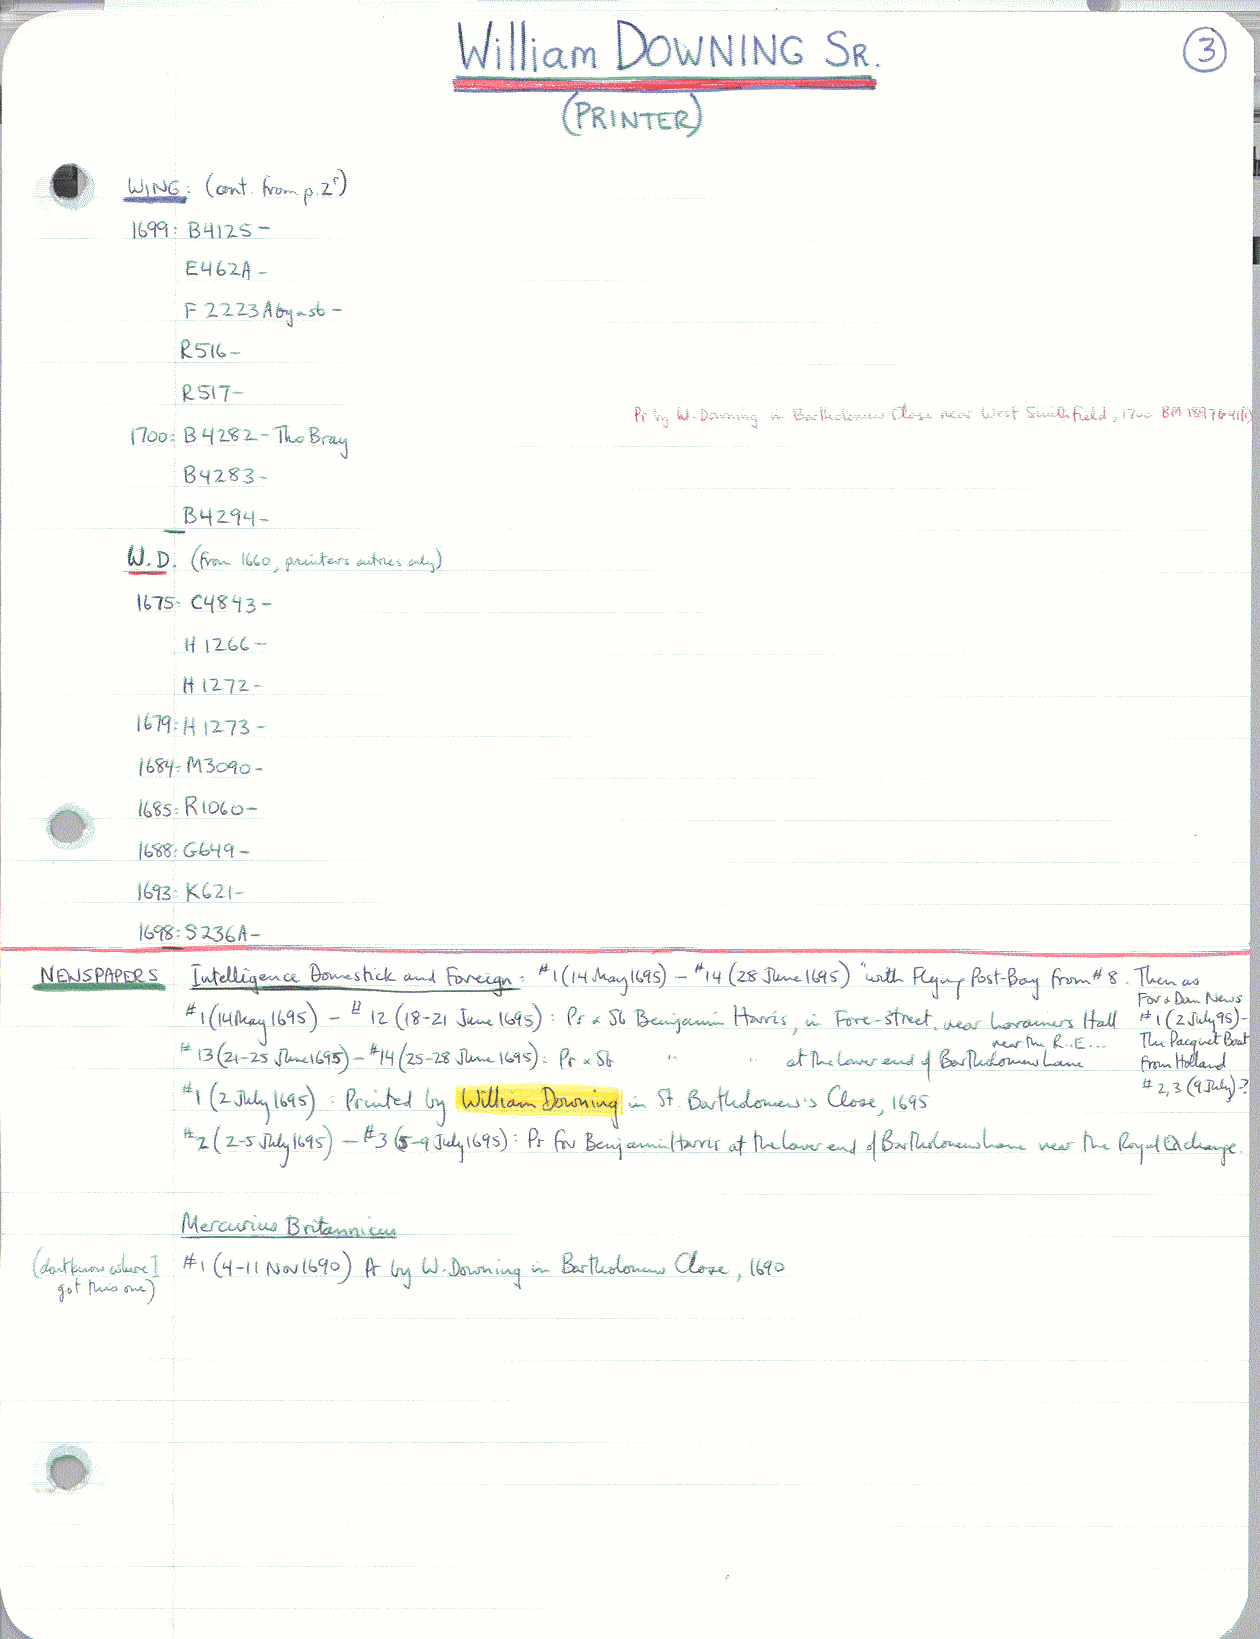 William DOWNING SR.
3
(PRINTER)
WING: (cont. from p. 2r)
1699: B4125 -
E462A -
F 2223A by & sb -
R516 -
R517 -
Pr by W. Downing in Bartholomew Close near West Smithfield, 1700 BM
1700: B4282 - Tho Bray
B4283 -
B4294 -
W.D. (from 1660, printers entries only)
1675: C4843 -
H 1266 -
H 1272 -
1679: H 1273 -
1684: M3090 -
1685: R1060 -
1688: G649 -
1693: K621 -
1698: S236A -
NEWSPAPERS Intelligence Domestick and Foreign: #1 (14 May 1695) - #14 (28 June 1695) "with Flying Post-Boy from #8. Then as
For & Dom News
#1 (14 May 1695) - # 12 (18-21 June 1695): Pr & Sb Benjamin Harris, in Fore-street, near Loraniers Hall
#1 (2 July 95) -
near the R.E...
The Pacquet Boat
#13 (21-25 June 1695) - #14 (25-28 June 1695): Pr & Sb " " at the lower end of Bartholomew Lane
from Holland
#2, 3 (9 July) - ?
#1 (2 July 1695): Printed by William Downing in St. Bartholomew's Close, 1695
#2 (2-5 July 1695) - #3 (5-9 July 1695): Pr for Benjamin Harris at the lower end of Bartholomew Lane near the Royal Exchange.
Mercurius Britannicus
(don't know where I
#1 (4-11 Nov 1690) Pr by W. Downing in Bartholomew Close, 1690
got this one)